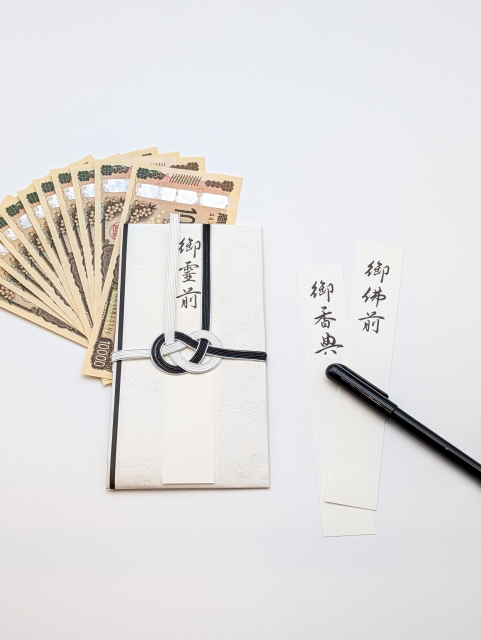 御霊前
御香典
御佛前
10000